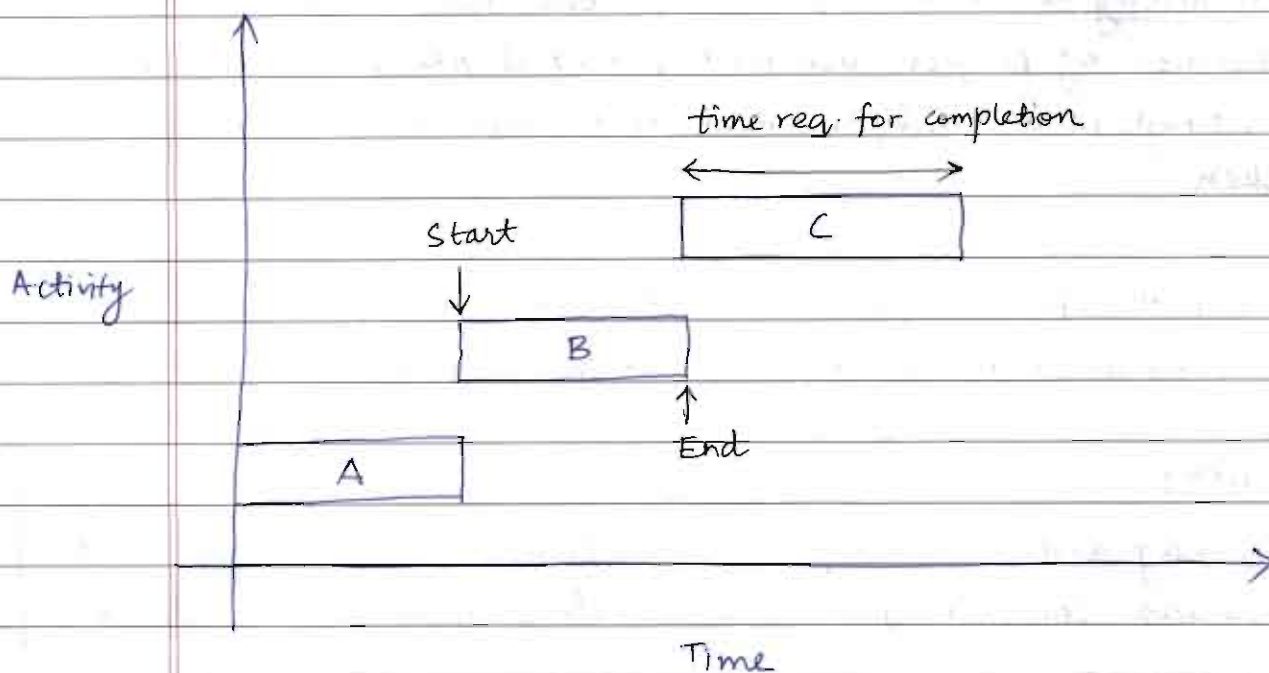 time req. for completion
C
Start
Activity
B
End
A
Time